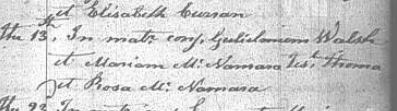 et Elisabeth Curran
the 13th. In matr conj. Gulielmum Walsh
et Mariam Mc Namara Test. Thoma
et Rosa Mc Namara
the 22